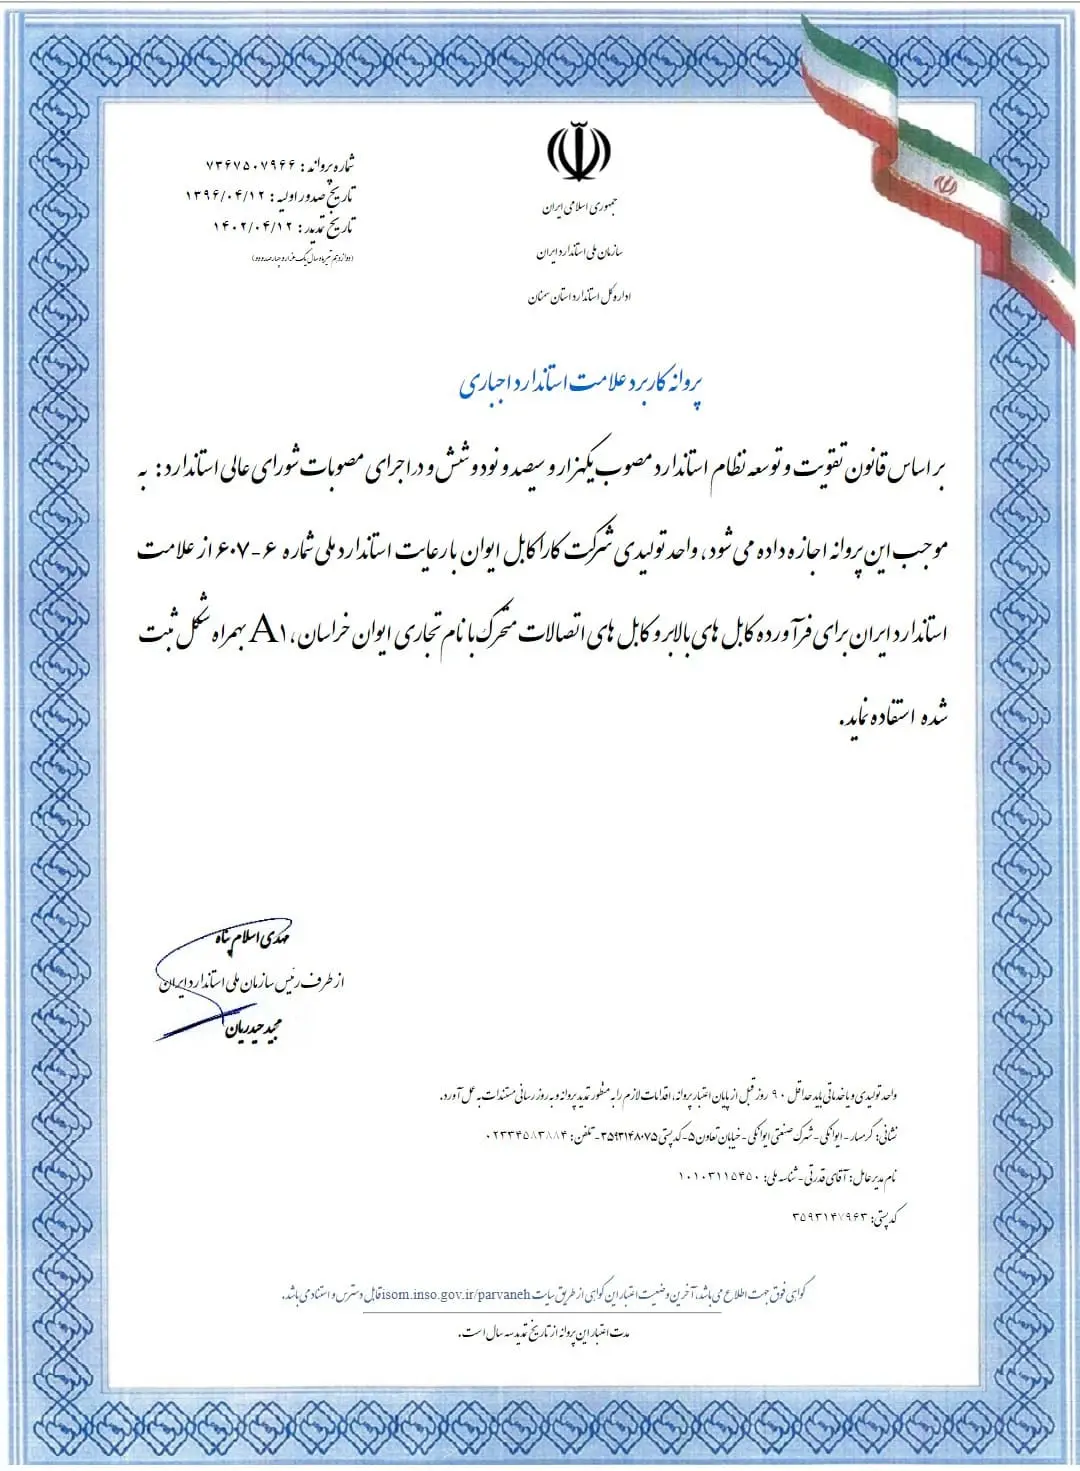 جمهوری اسلامی ایران
سازمان ملی استاندارد ایران
اداره کل استاندارد استان سمنان
شماره پروانه : ۷۳۶۷۵۰۷۹۶۶
تاریخ صدور اولیه : ۱۳۹۶/۰۴/۱۲
تاریخ تمدید : ۱۴۰۲/۰۴/۱۲
(دوازدهم تیر ماه سال یک هزار و چهارصد و دو)
پروانه کاربرد علامت استاندارد اجباری
بر اساس قانون تقویت و توسعه نظام استاندارد مصوب یکهزار و سیصد و نود و شش و در اجرای مصوبات شورای عالی استاندارد : به
موجب این پروانه اجازه داده می شود ، واحد تولیدی شرکت کارا کابل ایوان با رعایت استاندارد ملی شماره ۶-۶۰۷ از علامت
استاندارد ایران برای فرآورده کابل های بالابر و کابل های اتصالات متحرک با نام تجاری ایوان خراسان، A۱ بهمراه شکل ثبت
شده استفاده نماید.
مهدی اسلام پناه
از طرف رئیس سازمان ملی استاندارد ایران
مجید حیدریان
واحد تولیدی و یا خدماتی باید حداقل ۹۰ روز قبل از پایان اعتبار پروانه، اقدامات لازم را به منظور تمدید پروانه و به روز رسانی مستندات به عمل آورد.
نشانی: گرمسار - ایوانکی - شهرک صنعتی ایوانکی - خیابان تعاون ۵ - کد پستی ۳۵۹۳۱۴۸۰۷۵ - تلفن: ۰۲۳۳۴۵۸۳۸۸۴
نام مدیر عامل: آقای قدرتی - شناسه ملی: ۱۰۱۰۳۱۱۵۴۵۰
کد پستی: ۳۵۹۳۱۴۷۹۶۳
گواهی فوق جهت اطلاع می باشد، آخرین وضعیت اعتبار این گواهی از طریق سایت isom.inso.gov.ir/parvaneh قابل دسترس و استناد می باشد.
مدت اعتبار این پروانه از تاریخ تمدید سه سال است.